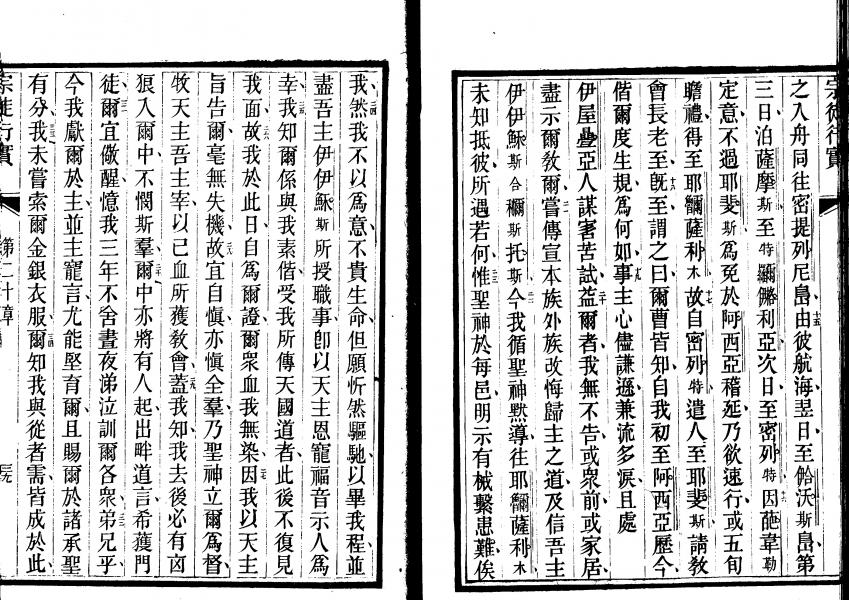 之入舟同往密提列尼島由彼航海昱日至倫沃斯島第
三日泊薩摩斯至特爾儸利亞次日至密列特因葩韋勒
定意不過耶斐斯爲免於阿西亞稽延乃欲速行或五旬
瞻禮得至耶爾薩利木故自密列特遣人至耶斐斯請敎
會長老至旣至謂之曰爾曹皆知自我初至阿西亞歷今
偕爾度生規爲何如事主心儘謙遜兼流多淚且處
伊屋疊亞人謀害苦試益爾者我無不告或衆前或家居
盡示爾敎爾嘗傳宣本族外族改悔歸主之道及信吾主
伊伊穌斯合穪斯托斯今我循聖神默導往耶爾薩利木
未知抵彼所遇若何惟聖神於每邑明示有械繫患難俟
宗徒行實
我然我不以爲意不貴生命但願忻然驅馳以畢我程並
盡吾主伊伊穌斯所授職事卽以天主恩寵福音示人爲
幸我知爾係與我素偕受我所傳天國道者此後不復見
我面故我於此日自爲爾證爾衆血我無染因我以天主
旨告爾毫無失機故宜自慎亦慎全羣乃聖神立爾爲督
牧天主吾主宰以己血所獲敎會蓋我知我去後必有凶
狼入爾中不憫斯羣爾中亦將有人起出畔道言希獲門
徒爾宜儆醒憶我三年不舍晝夜涕泣訓爾各衆弟兄乎
今我獻爾於主並主寵言尤能堅育爾且賜爾於諸承聖
有分我未嘗索爾金銀衣服爾知我與從者需皆成於此
宗徒行實 第二十章